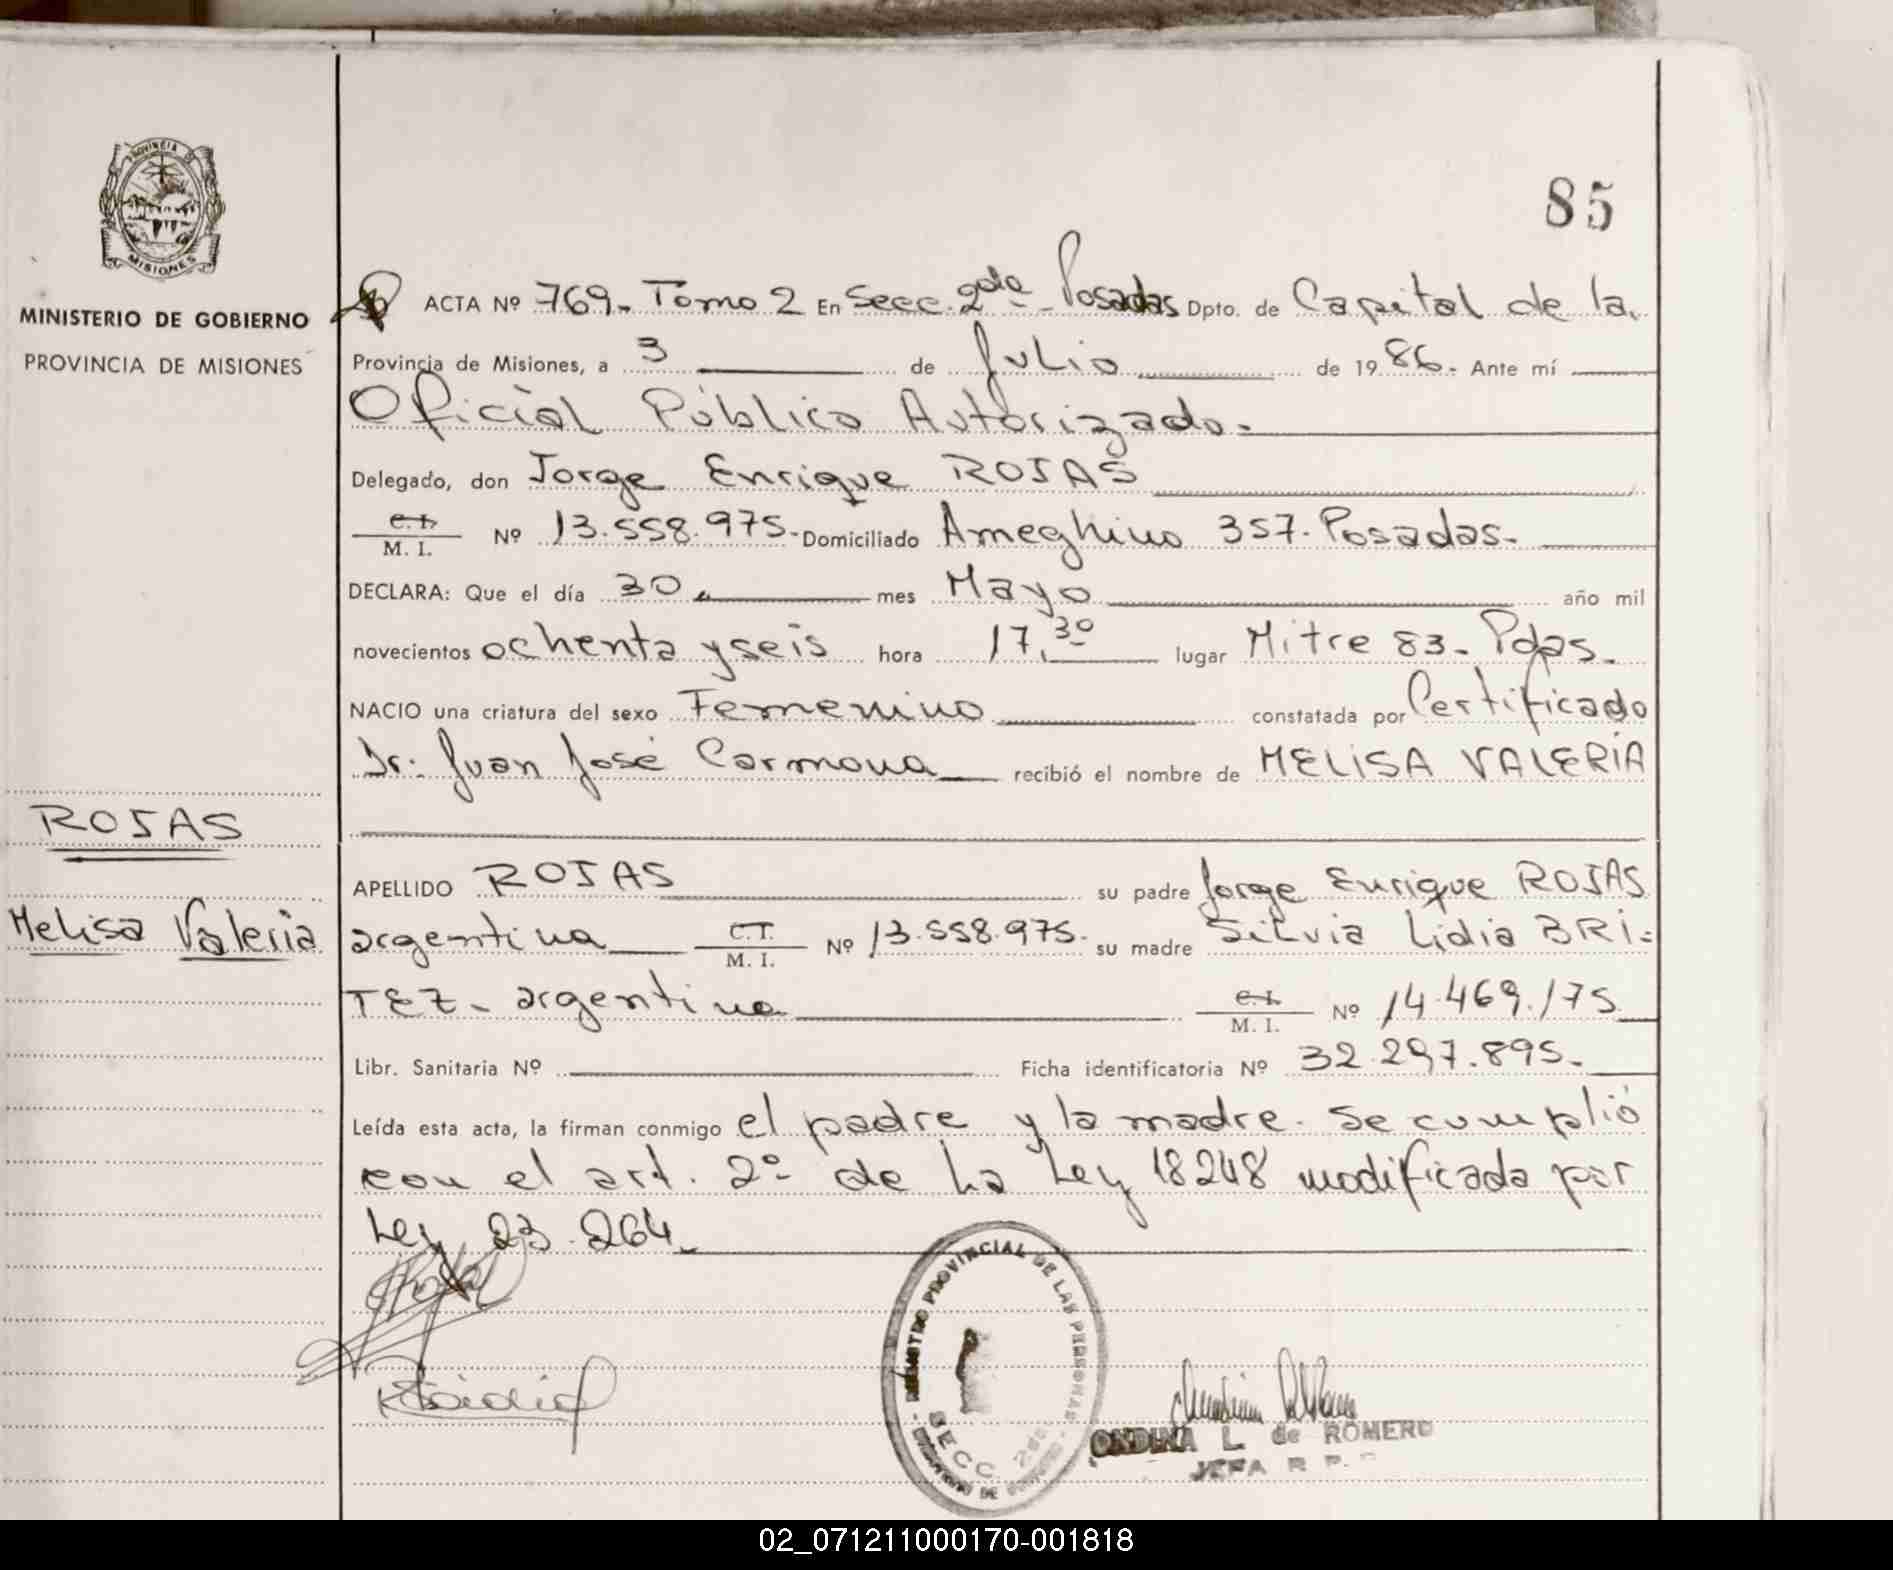 85
PROVINCIA DE
MISIONES
MINISTERIO DE GOBIERNO
PROVINCIA DE MISIONES
ACTA Nº 769. Tomo 2 En Secc. 2da Posadas Dpto. de Capital de la
Provincia de Misiones, a 3 de Julio de 1986. Ante mí
Oficial Público Autorizado.
Delegado, don Jorge Enrique ROJAS
C.I.
M. I. Nº 13.558.975. Domiciliado Ameghino 357. Posadas.
DECLARA: Que el día 30 mes Mayo año mil
novecientos ochenta y seis hora 17,30 lugar Mitre 83. Pdas.
NACIO una criatura del sexo Femenino constatada por Certificado
Dr. Juan José Carmona recibió el nombre de MELISA VALERIA
ROJAS
Melisa Valeria
APELLIDO ROJAS su padre Jorge Enrique ROJAS
argentina C.I. Nº 13.558.975. su madre Silvia Lidia BRI=
M. I.
TEZ. argentina C.I. Nº 14.469.175
M. I.
Libr. Sanitaria Nº Ficha identificatoria Nº 32.297.895.
Leída esta acta, la firman conmigo el padre y la madre. Se cumplió
con el art. 2º de la Ley 18248 modificada por
Ley 23.264.
REGISTRO PROVINCIAL DE LAS PERSONAS
SECC. 2da
ONDINA L. de ROMERO
JEFA R. P.
02_071211000170-001818